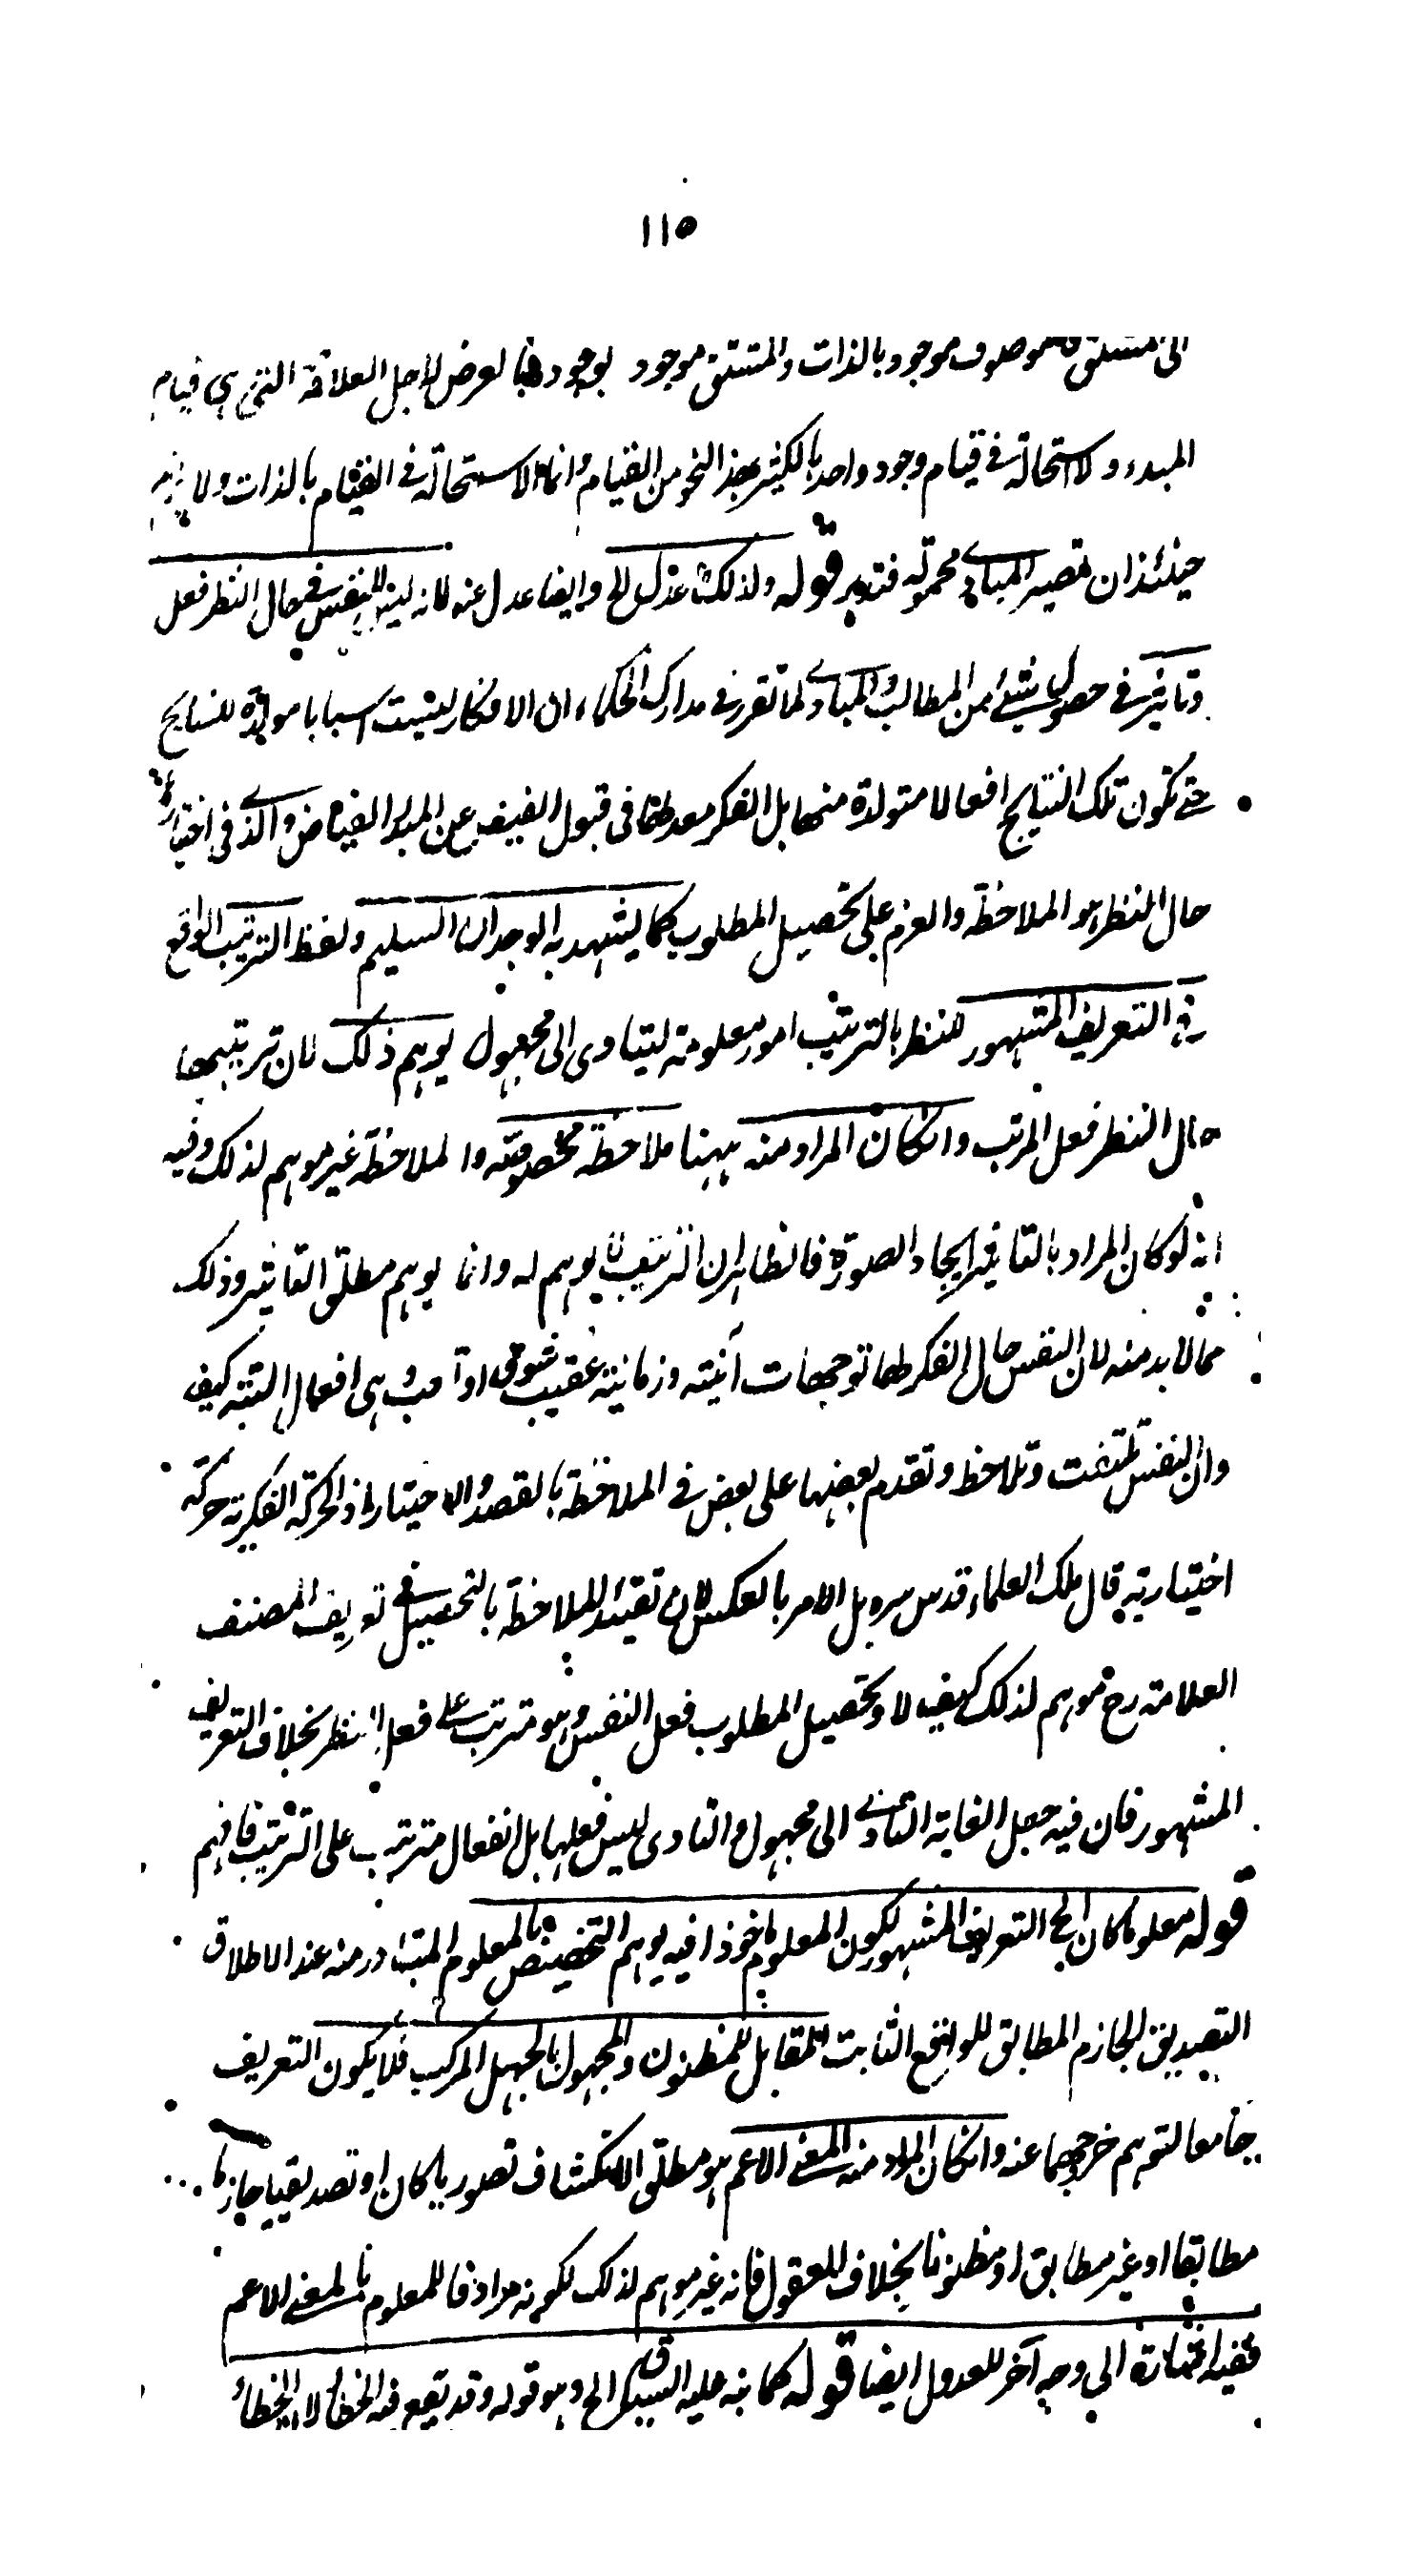 ١١٥
الى المشتق فالموصوف موجود بالذات والمشتق موجود بوجوده بالعرض لاجل العلاقة التي هي قيام
المبدء ولا استحالة في قيام وجود واحد بالكثير بهذا النحو من القيام وانما الاستحالة في القيام بالذات ولا يلزم
حينئذ ان تصير المبادي محمولة فتدبر قوله ولذلك عدل الخ وايضا عدل عنه لانه ليس للنفس في حال النظر فعل
وتاثير في حصول شيئ من المطالب والمبادي لما تقرر في مدارك الحكماء ان الافكار ليست اسبابا مولدة للنتايج
حتى تكون تلك النتايج افعالا متولدة منها بل الفكر معد لها في قبول الفيض عن المبدء الفياض والذي في اختياره
حال النظر هو الملاحظة والعزم على تحصيل المطلوب كما يشهد به الوجدان السليم ولفظ الترتيب الواقع
في التعريف المشهور للنظر بالترتيب امور معلومة ليتادى الى مجهول يوهم ذلك لان ترتيبها
حال النظر فعل المرتب وانكان المراد منه ههنا ملاحظة مخصوصة والملاحظة غير موهم لذلك وفيه
انه لو كان المراد بالتاثير ايجاد الصورة فالظاهر ان الترتيب لا يوهم له وانما يوهم مطلق التاثير وذلك
مما لا بد منه لان النفس حال الفكر لها توجهات آنية وزمانية عقيب شوق وهي افعال البتة كيف
وان النفس تلتفت وتلاحظ وتقدم بعضها على بعض في الملاحظة بالقصد والاختيار اذ الحركة الفكرية حركة
اختيارية قال ملك العلماء قدس سره بل الامر بالعكس لان تقييد الملاحظة بالتحصيل في تعريف المصنف
العلامة رح موهم لذلك كيف لا وتحصيل المطلوب فعل النفس وهو مترتب على فعل النظر بخلاف التعريف
المشهور فان فيه جعل الغاية التادي الى مجهول والتادى ليس فعلها بل انفعال مترتب على الترتيب فافهم
قوله معلوما كان الخ التعريف المشهور لكون المعلوم ماخوذا فيه يوهم التخصيص بالمعلوم المتبادر منه عند الاطلاق
التصديق الجازم المطابق للواقع الثابت المقابل للمظنون والمجهول بالجهل المركب فلا يكون التعريف
جامعا لتوهم خروجهما عنه وانكان المراد منه المعنى الاعم هو مطلق الانكشاف تصوريا كان او تصديقيا جازما
مطابقا او غير مطابق او مظنونا بخلاف المعقول فانه غير موهم لذلك لكونه مرادفا للمعلوم بالمعنى الاعم
ففيه اشارة الى وجه آخر للعدول ايضا قوله كما نبه عليه السيد الخ وهو قوله وقد يقع فيه الخطأ لان الخطأ